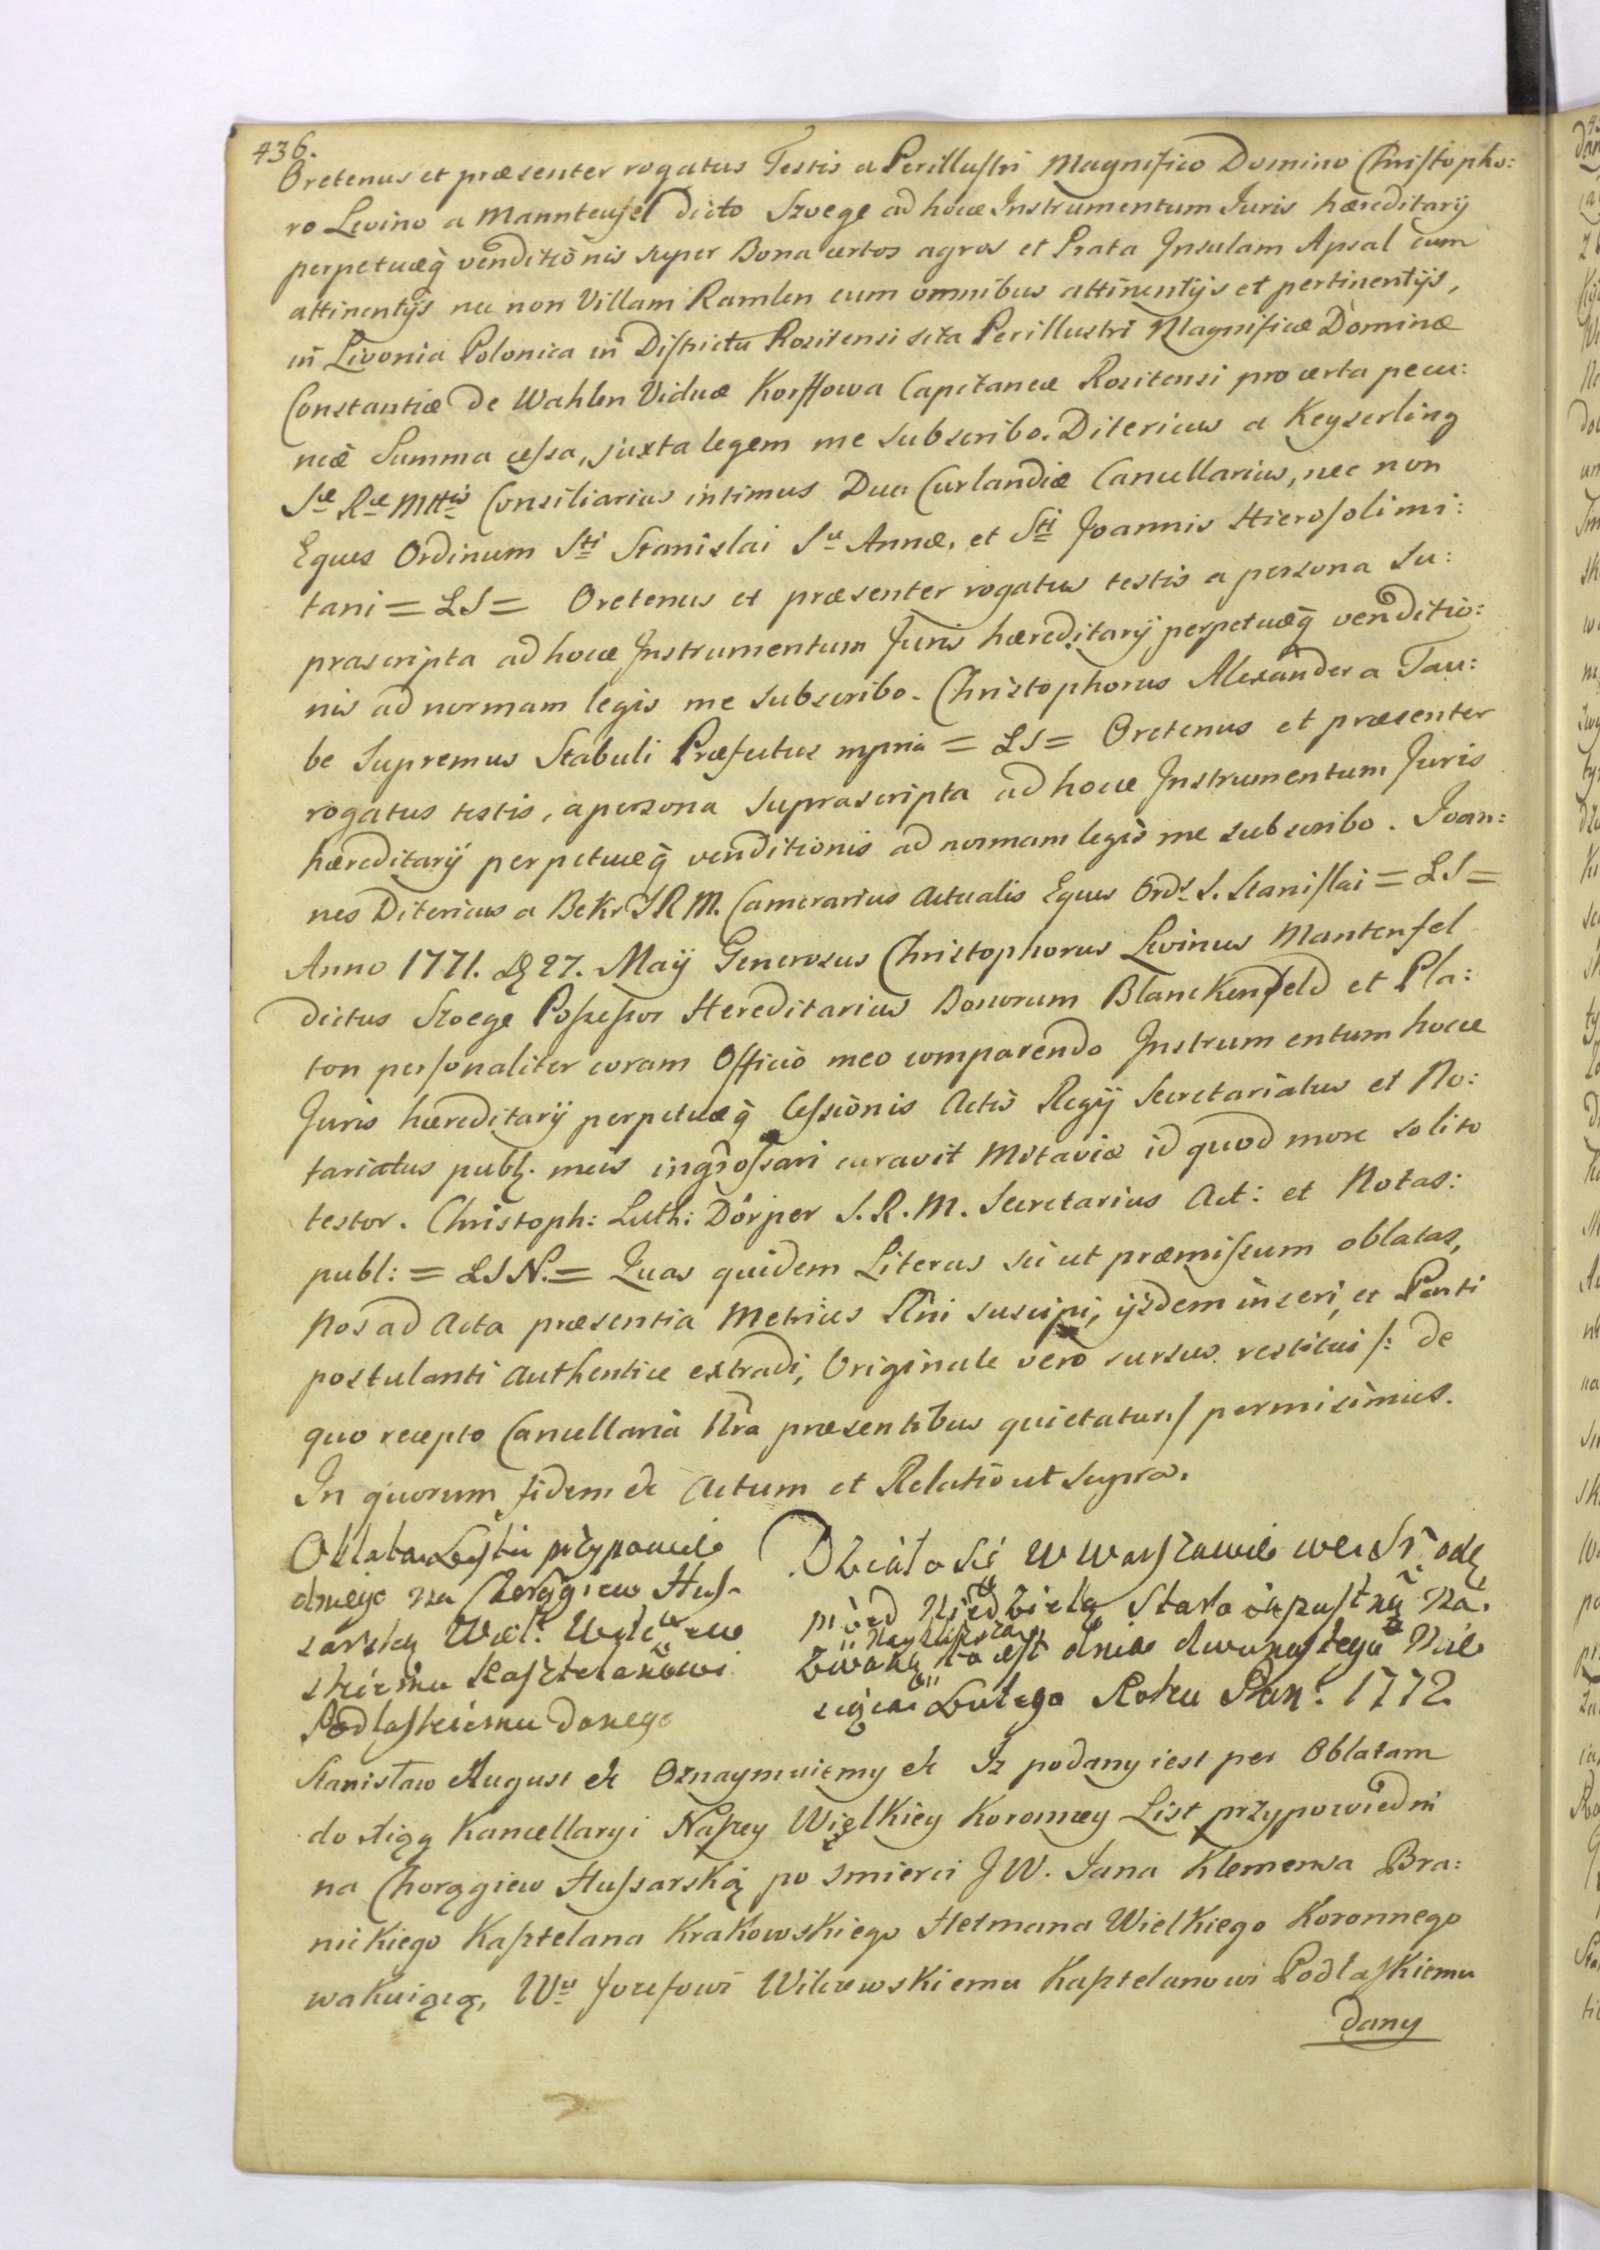 436.
Oretenus et præsenter rogatus Testis a Perillustri Magnifico Domino Christopho:
ro Levino a Mannteufel dicto Szoege ad hocce Instrumentum Juris hæreditarij
perpetuæq̀ venditionis super Bona certos agros et Prata Insulam Apsal cum
attinentijs nec non Villam Ramlen cum omnibus attinentijs et pertinentijs,
in Livonia Polonica in Districtu Rositensi sita Perillustri Magnificæ Dominæ
Constantiæ de Wahlen Viduæ Korffowa Capitaneæ Rositensi pro certa pecu:
niæ Summa cessa, juxta legem me subscribo. Ditericus a Keyserling
Sæ Ræ Mttis Consiliarius intimus Duc. Curlandiæ Cancellarius, nec non
Eques Ordinum Sti Stanislai Sæ Annæ, et Sti Joannis Hierosolimi:
tani = LS = Oretenus et præsenter rogatus testis a persona su:
prascripta ad hocce Instrumentum Juris hæreditarij perpetuæq̀ venditio:
nis ad normam legis me subscribo. Christophorus Alexander a Tau:
be Supremus Stabuli Præfectus mpria = LS = Oretenus et præsenter
rogatus testis, a persona suprascripta ad hocce Instrumentum Juris
hæreditarij perpetuæq̀ venditionis ad normam legis me subscribo. Joan:
nes Ditericus a Bekr S R M. Camerarius Actualis Eques Ords S. Stanislai = LS =
Anno 1771. D 27. Maij Generosus Christophorus Levinus Mantenfel
dictus Szoege Possessor Hereditarius Bonorum Blanckenfeld et Pla:
ton personaliter coram Officio meo comparendo Instrumentum hocce
Juris hæreditarij perpetuæq̀ Cessionis Actis Regij Secretariatus et No:
tariatus publ. meis ingrossari curavit Mitaviæ id quod more solito
testor. Christoph: Luth: Dörper S. R. M. Secretarius Act: et Notas:
publ: = LSN. = Quas quidem Literas sic ut præmissum oblatas,
Nos ad Acta præsentia Metrices Rni suscipi, ijsdem inseri, et Parti
postulanti authentice extradi, Originale vero rursus restitui /: de
quo recepto Cancellaria Nra præsentibus quietatur :/ permisimus.
In quorum fidem &c Actum et Relatio ut supra.
Oblata Listu przypowie
dnego na Chorągiew Hus-
sarską Wiel. Wilczew
skiemu Kasztelanowi
Podlaskiemu danego
Działo się w Warszawie we Srodę
przed Niedzielą Starozapustną Na.
zwaną to iest dnia dwunastego Mie
siąca Lutego Roku Pan. 1772
Stanisław August &c Oznaymuiemy &c Iz podany iest per Oblatam
do Xiąg Kancellaryi Naszey Więlkiey Koronney List przypowiedni
na Chorągiew Hussarską po smierci J W. Jana Klemensa Bra:
nickiego Kasztelana Krakowskiego Hetmana Wielkiego Koronnego
wakuiącą, Wu Jozefowi Wilczewskiemu Kasztelanowi Podlaskiemu
dany